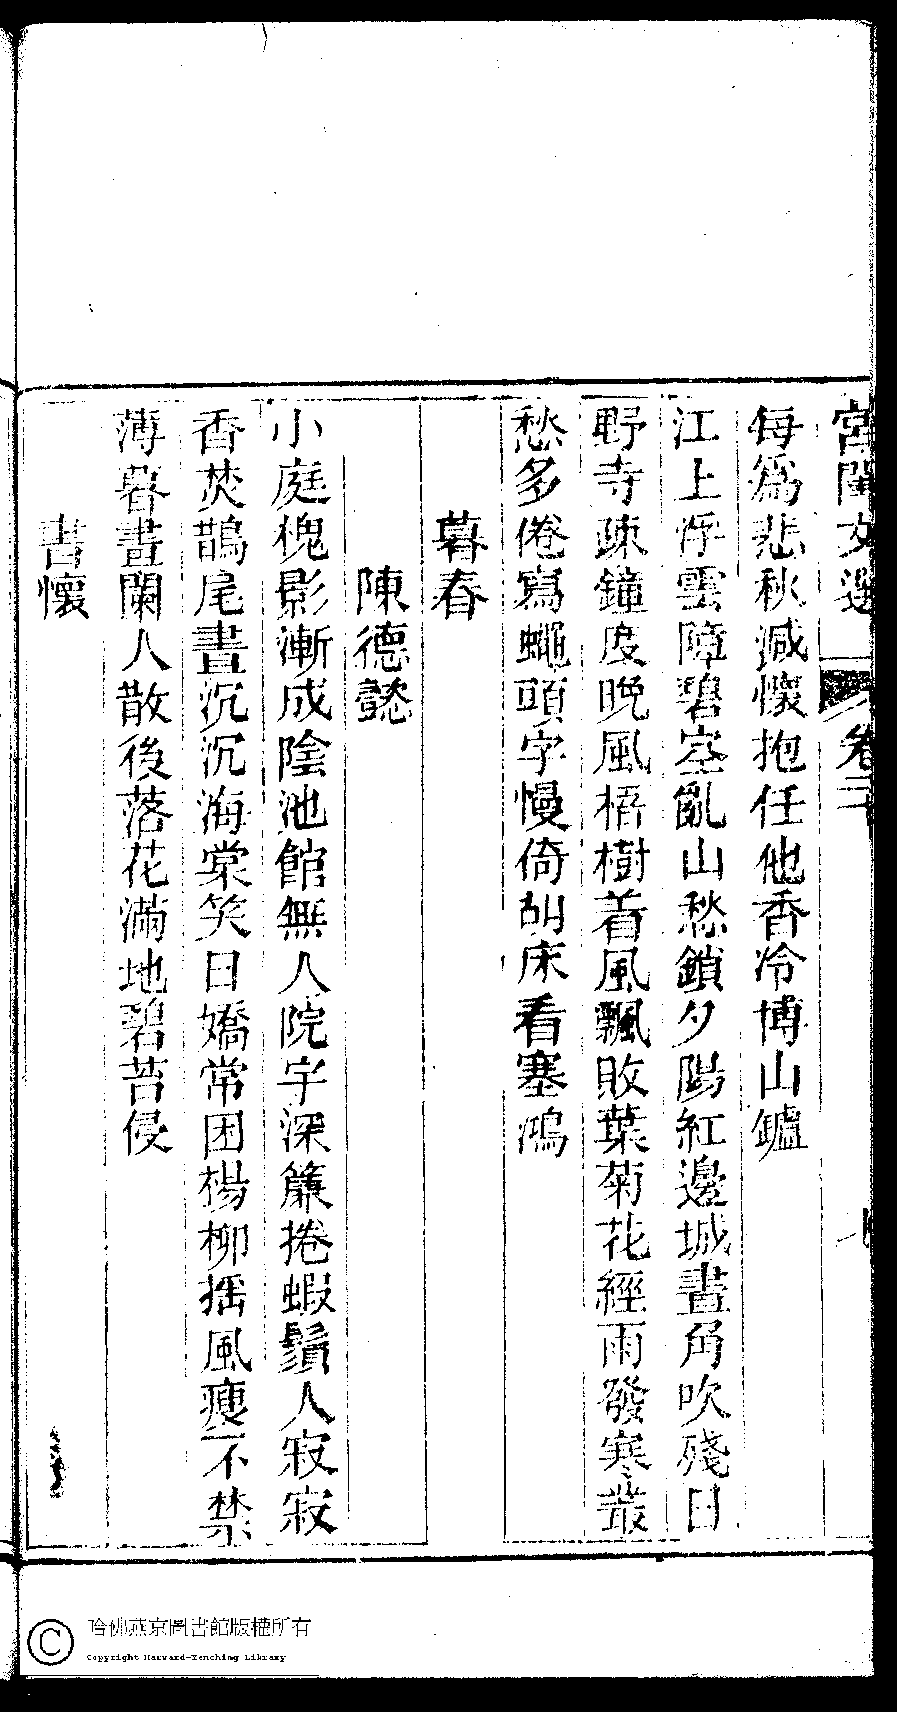 宮閨文選 卷二十 七
每爲悲秋減懷抱任他香冷博山鑪
江上浮雲障碧空亂山愁鎖夕陽紅邊城畫角吹殘日
野寺疎鐘度晚風梧樹着風飄敗葉菊花經雨發寒叢
愁多倦寫蠅頭字慢倚胡床看塞鴻
暮春
陳德懿
小庭槐影漸成陰池館無人院宇深簾捲蝦鬚人寂寂
香焚鵲尾晝沉沉海棠笑日嬌常困楊柳揺風瘦不禁
薄暮畫闌人散後落花滿地碧苔侵
書懷
哈佛燕京圖書館版權所有
Copyright Harvard-Yenching Library